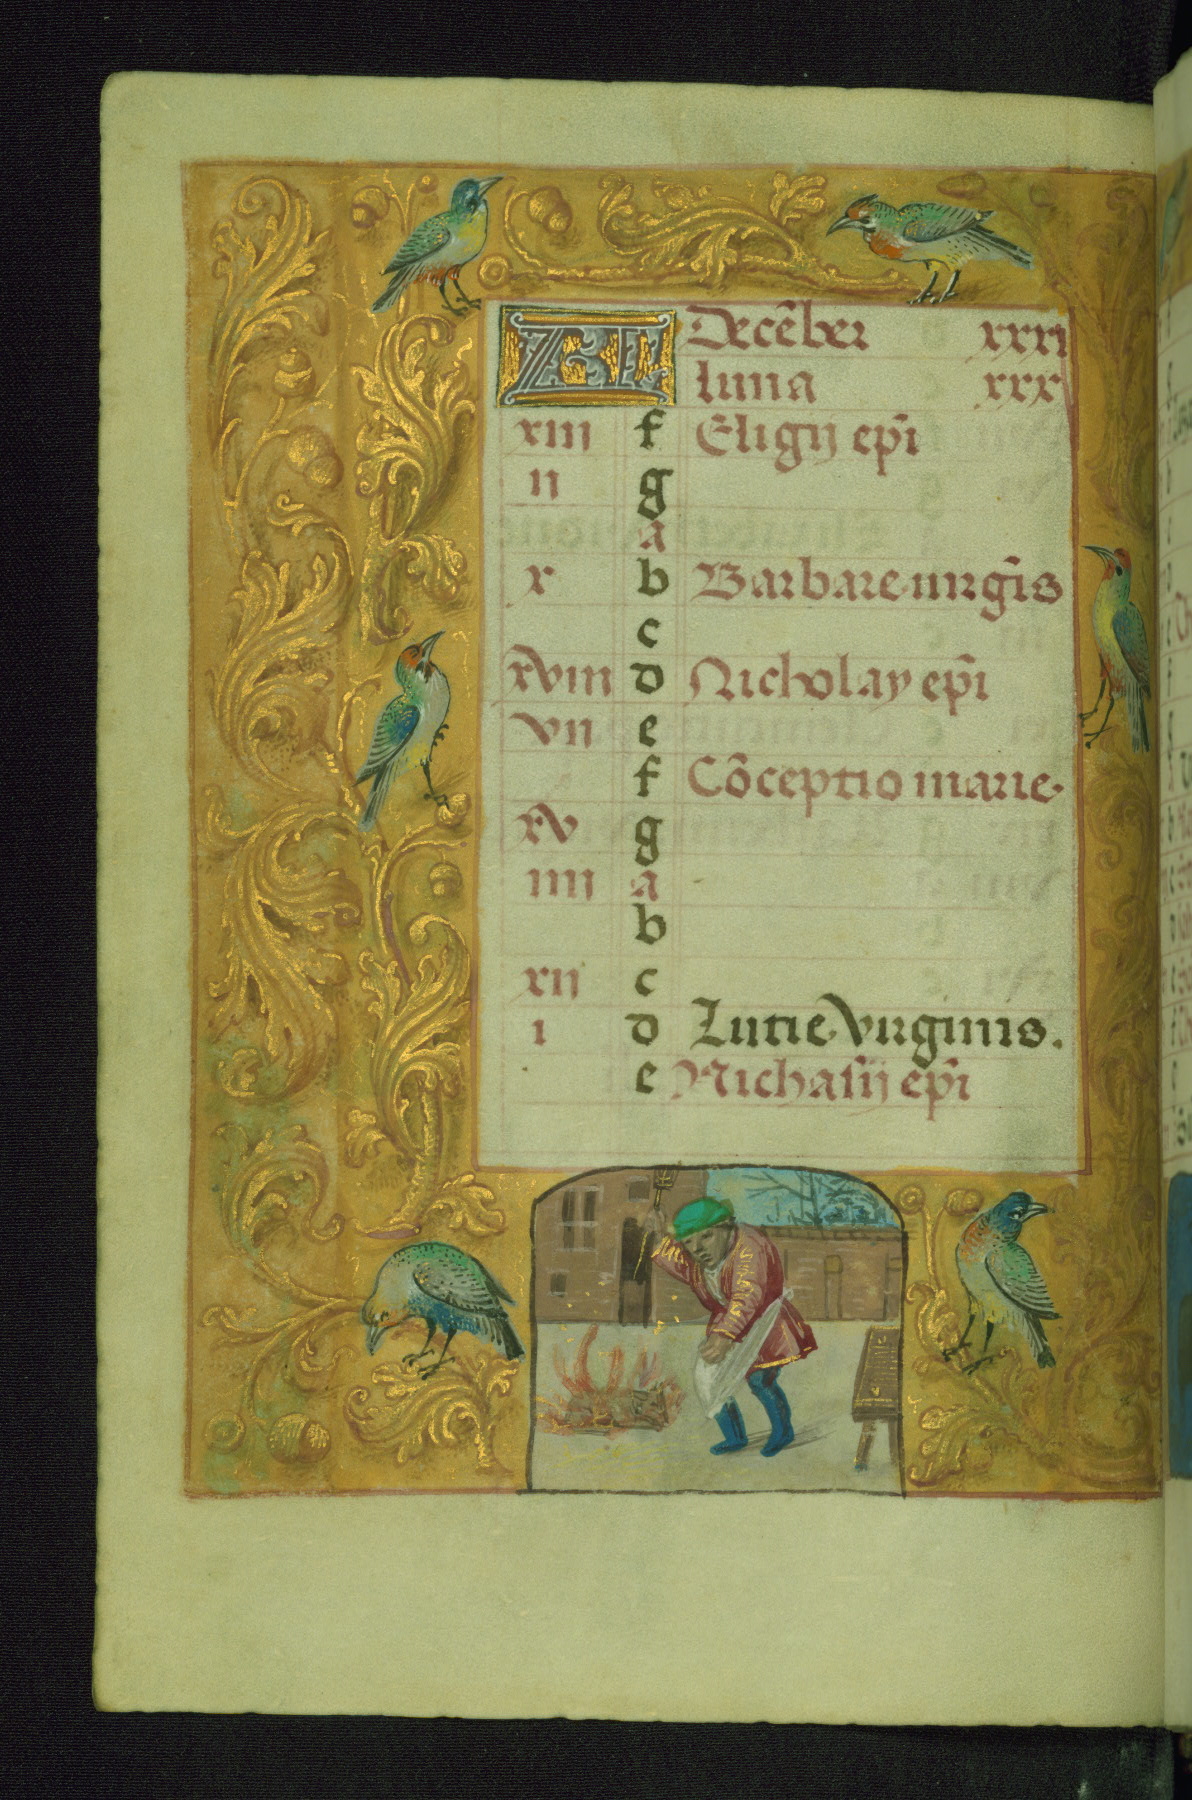 KL Decēber xxxi
luna xxx
xiii f Eligij ep̄i
ii g
a
x b Barbare uirgīs
c
xviii d Nicholay ep̄i
vii e
f Cōceptio marie.
xv g
iiii a
b
xii c
i d Lucie virginis.
e Nichasij ep̄i